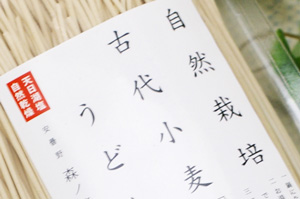 自然栽培
古代小麦
うど
天日湖塩
自然乾燥
安曇野
森ノ